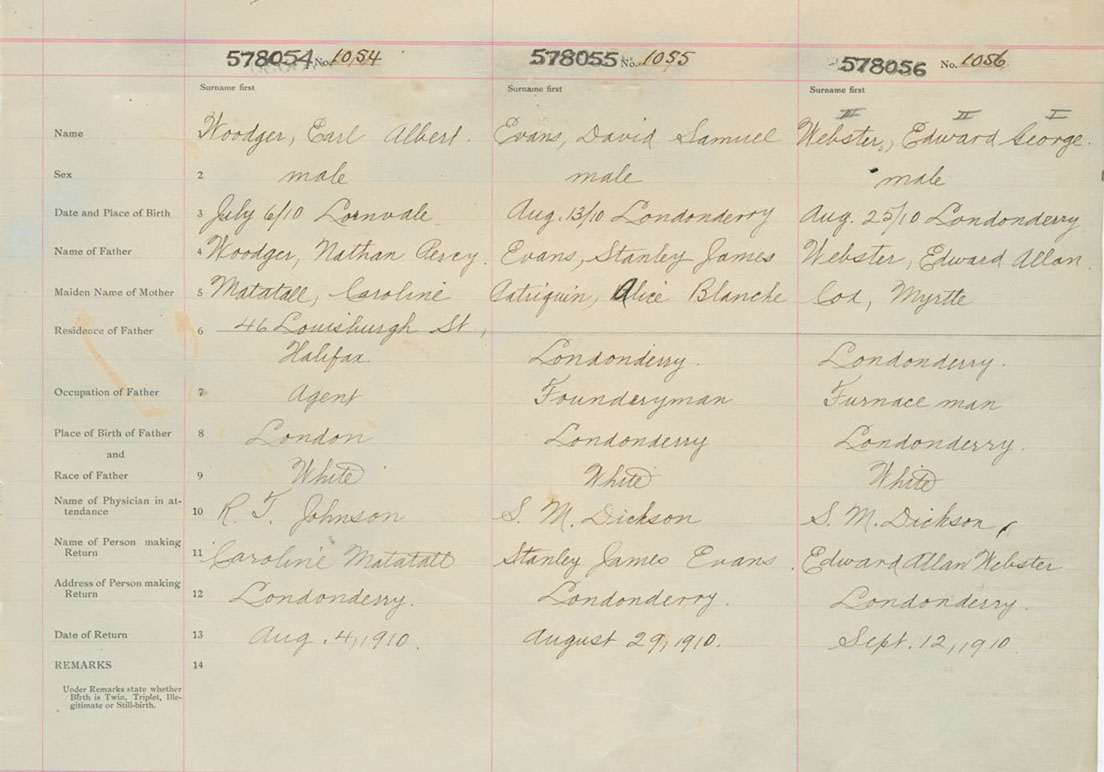 578054 No. 1054 578055 No. 1055 578056 No. 1056
Surname first Surname first Surname first
III II I
Name Woodger, Earl Albert. Evans, David Samuel Webster, Edward George.
Sex 2 male male male
Date and Place of Birth 3 July 6/10 Lornvale Aug. 13/10 Londonderry Aug. 25/10 Londonderry
Name of Father 4 Woodger, Nathan Percy. Evans, Stanley James Webster, Edward Allan.
Maiden Name of Mother 5 Matatall, Caroline Patriquin, Alice Blanche Cox, Myrtle
Residence of Father 6 46 Louisburgh St.,
Halifax. Londonderry. Londonderry.
Occupation of Father 7 Agent Founderyman Furnace man
Place of Birth of Father 8 London Londonderry Londonderry.
and
Race of Father 9 White White White
Name of Physician in at-
tendance 10 R. T. Johnson S. M. Dickson S. M. Dickson
Name of Person making
Return 11 Caroline Matatall Stanley James Evans. Edward Allan Webster
Address of Person making
Return 12 Londonderry. Londonderry. Londonderry.
Date of Return 13 Aug. 4, 1910. August 29, 1910. Sept. 12, 1910
REMARKS 14
Under Remarks state whether
Birth is Twin, Triplet, Ille-
gitimate or Still-birth.